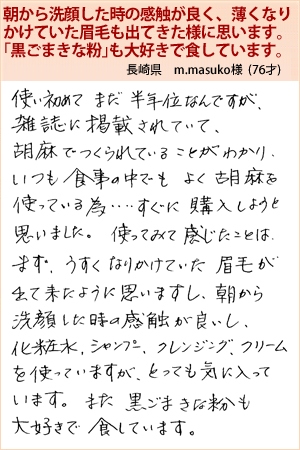 朝から洗顔した時の感触が良く、薄くなり
かけていた眉毛も出てきた様に思います。
「黒ごまきな粉」も大好きで食しています。
長崎県　m.masuko様 (76才)
使い初めて まだ 半年位なんですが、
雑誌に掲載されていて、
胡麻でつくられていることがわかり、
いつも食事の中でも よく胡麻を
使っている為‥‥すぐに購入しようと
思いました。使ってみて感じたことは、
まず、うすくなりかけていた 眉毛が
出て来たように思いますし、朝から
洗顔した時の感触が良いし、
化粧水、シャンプー、クレンジング、クリーム
を使っていますが、とっても気に入って
います。また 黒ごまきな粉も
大好きで食しています。